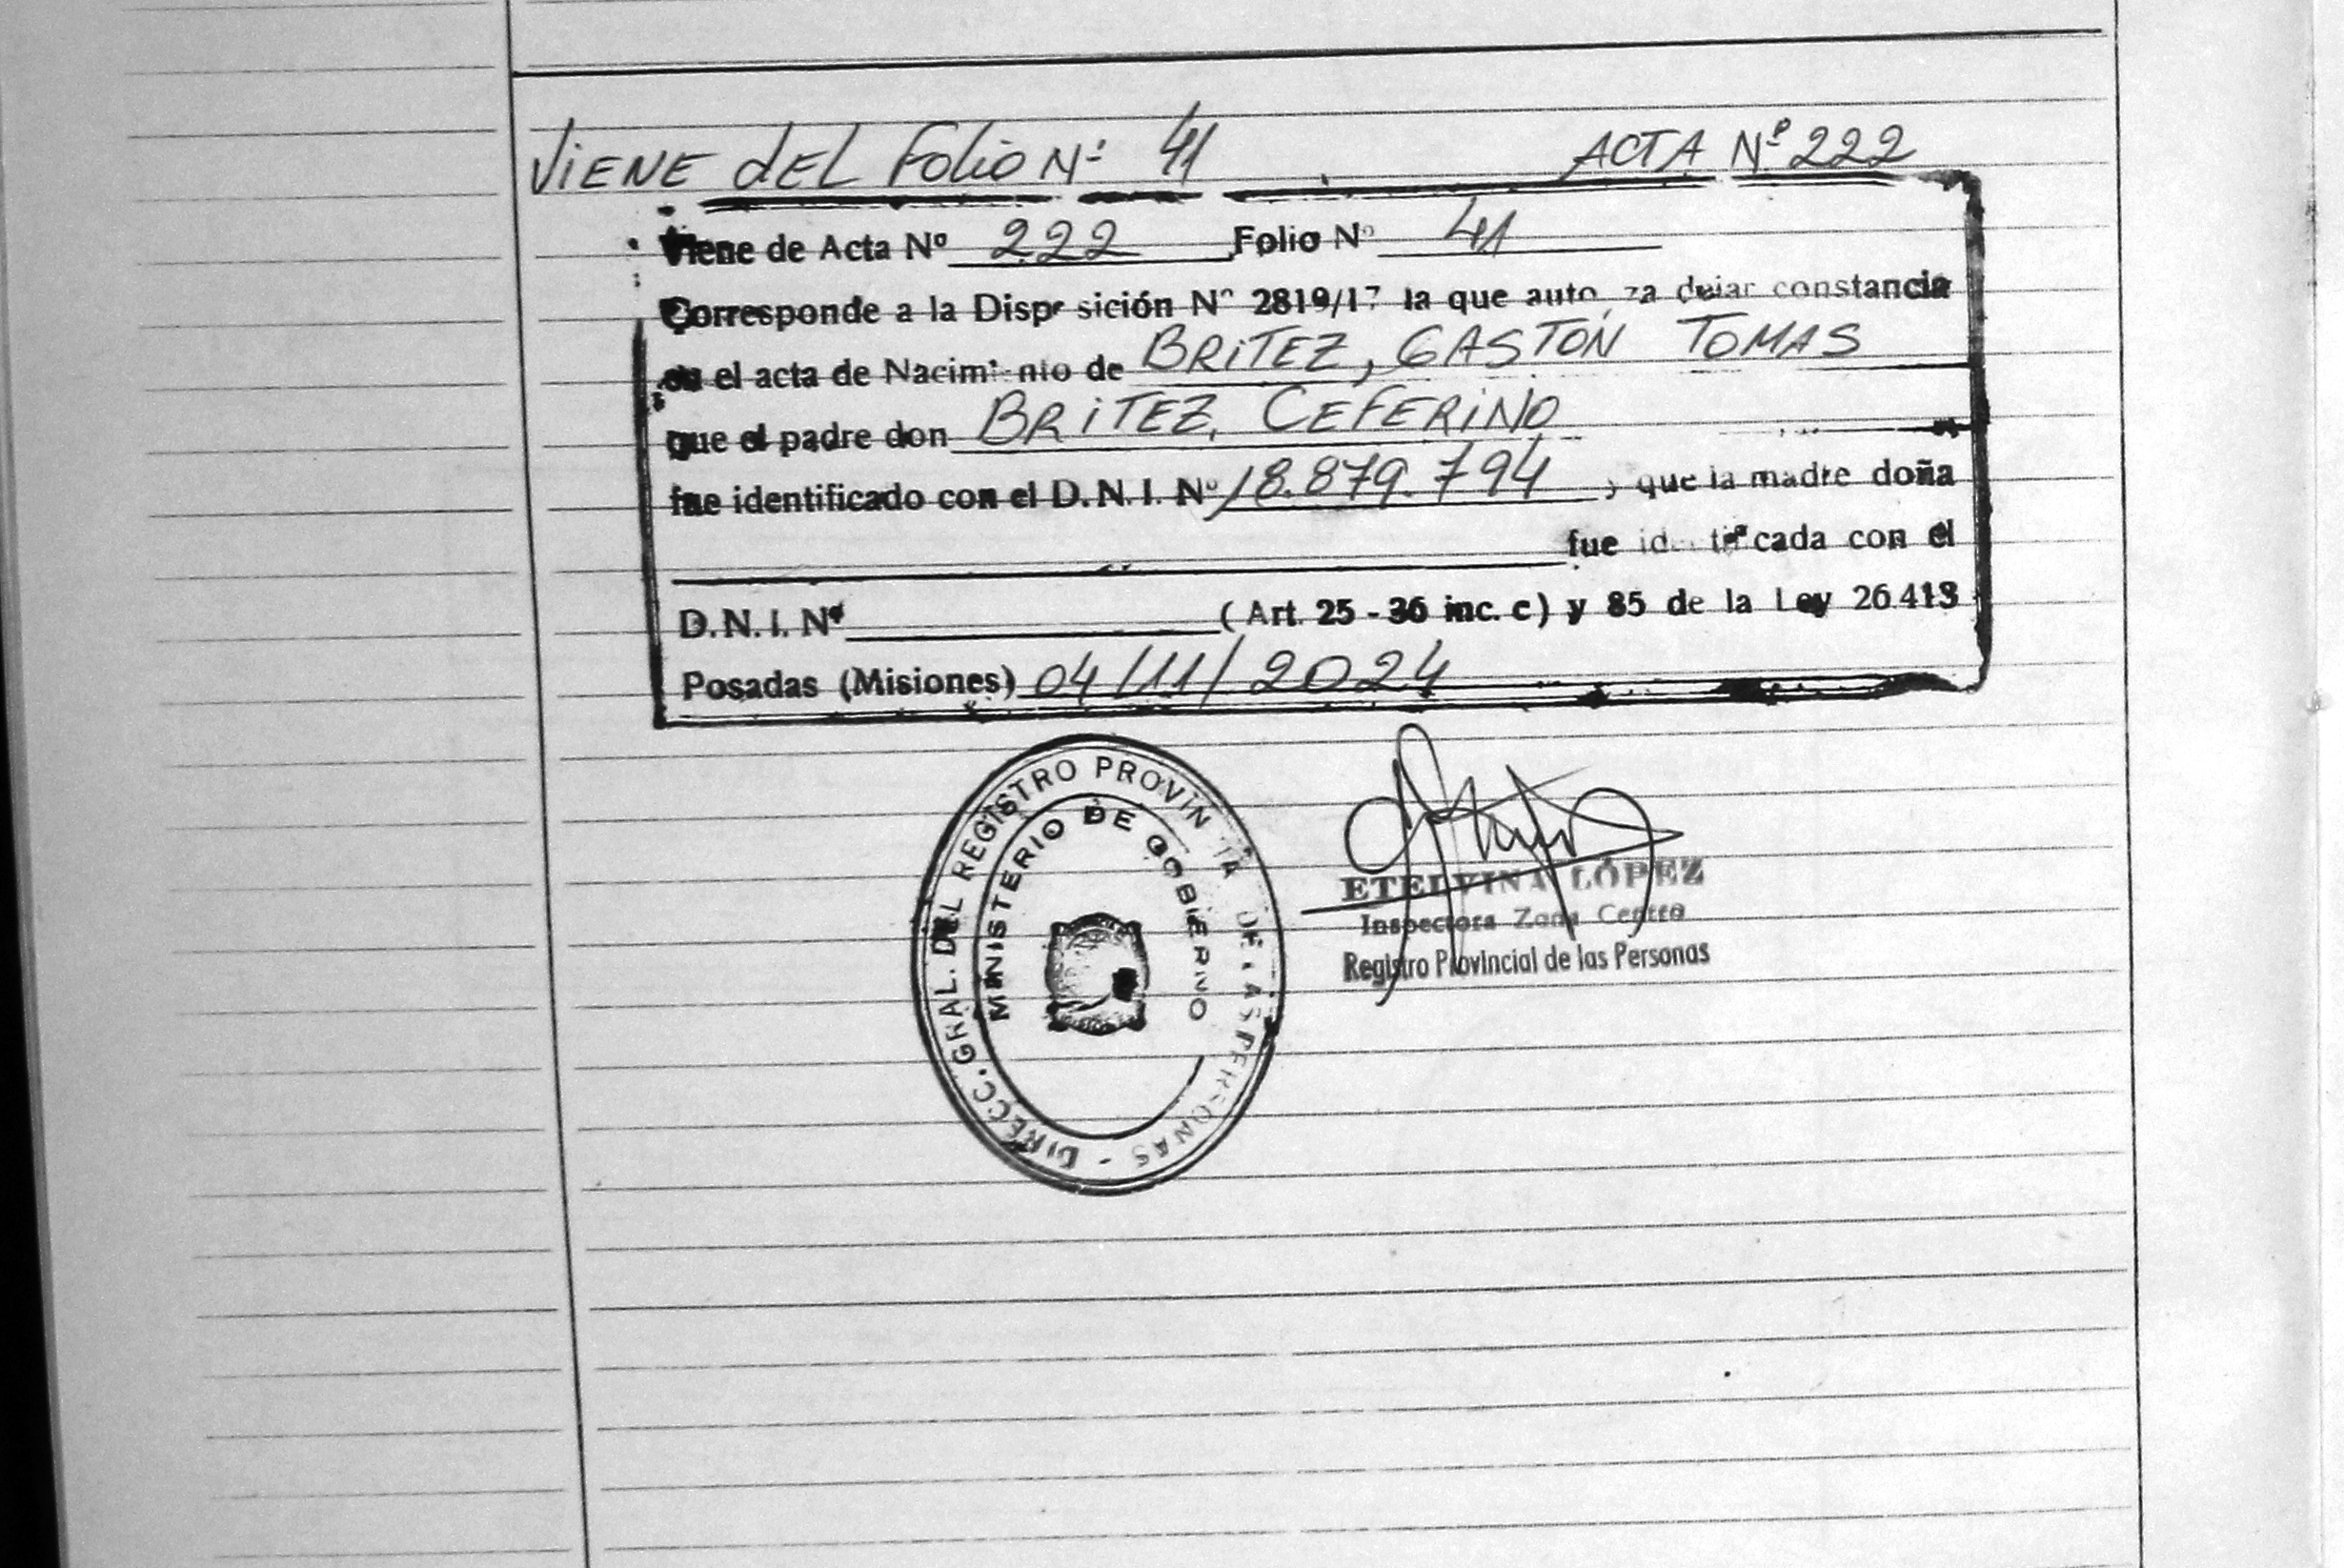 VIENE dEL FoLio Nº 41 ACTA Nº 222
Viene de Acta Nº 222 Folio Nº 41
Corresponde a la Disposición Nº 2819/17 la que autoriza dejar constancia
en el acta de Nacimiento de BRiTEZ, GASTON TOMAS
que el padre don BRiTEZ, CEFERiNO
fue identificado con el D.N.I. Nº 18.879.794 y que la madre doña
fue identificada con el
D.N.I. Nº ( Art. 25 - 36 inc. c) y 85 de la Ley 26.413
Posadas (Misiones) 04/11/2024
DIRECC. GRAL. DEL REGISTRO PROVINCIAL DE LAS PERSONAS -
MINISTERIO DE GOBIERNO
ETELVINA LÓPEZ
Inspectora Zona Centro
Registro Provincial de las Personas